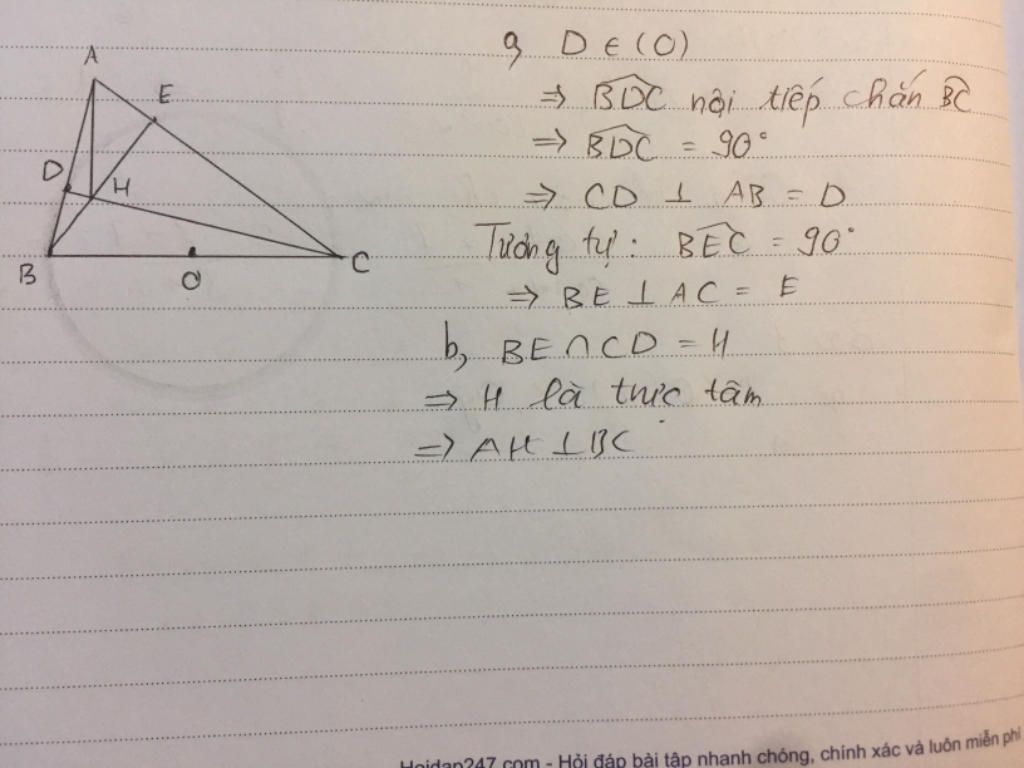 A
E
D
H
B
O
C
a, D ∈ (O)
⇒ \widehat{BDC} nội tiếp chắn \widehat{BC}
⇒ \widehat{BDC} = 90°
⇒ CD ⊥ AB = D
Tương tự: \widehat{BEC} = 90°
⇒ BE ⊥ AC = E
b, BE ∩ CD = H
⇒ H là trực tâm
⇒ AH ⊥ BC
Hoidap247.com - Hỏi đáp bài tập nhanh chóng, chính xác và luôn miễn phí